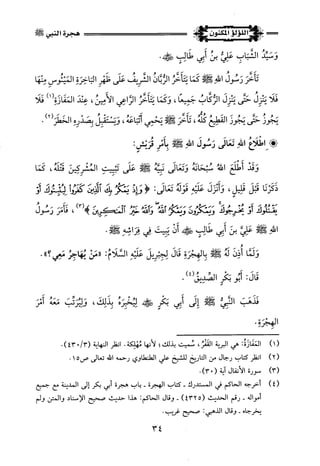 اللؤلؤ المكنون
هجرة النبي ﷺ
وَسَيِّدُ الشَّبَابِ عَلِيُّ بنُ أَبِي طَالِبٍ ﷺ.
تَأَخَّرَ رَسُولُ اللهِ ﷺ كَمَا يَتَأَخَّرُ الرُّبَّانُ الشَّرِيفُ عَلَى ظَهْرِ البَاخِرَةِ المَيْئُوسِ مِنْهَا
فَلَا يَنْزِلُ حَتَّى يَنْزِلَ الرُّكَّابُ جَمِيعًا، وَكَمَا يَتَأَخَّرُ الرَّاعِي الأَمِينُ، عِنْدَ المَفَازَةِ(١) فَلَا
يَجُوزُ حَتَّى يَجُوزَ القَطِيعُ كُلُّهُ، تَأَخَّرَ ﷺ يَحْمِي أَتْبَاعَهُ، وَيَسْتَقْبِلُ بِصَدْرِهِ الخَطَرَ(٢).
اطْلَاعُ اللهِ تَعَالَى رَسُولَ اللهِ ﷺ بِأَمْرِ قُرَيْشٍ:
وَقَدْ أَطْلَعَ اللهُ سُبْحَانَهُ وَتَعَالَى نَبِيَّهُ ﷺ عَلَى تَبْيِيتِ المُشْرِكِينَ قَتْلَهُ، كَمَا
ذَكَرْنَا قَبْلَ قَلِيلٍ، وَأَنْزَلَ عَلَيْهِ قَوْلَهُ تَعَالَى: ﴿وَإِذْ يَمْكُرُ بِكَ الَّذِينَ كَفَرُوا لِيُثْبِتُوكَ أَوْ
يَقْتُلُوكَ أَوْ يُخْرِجُوكَ وَيَمْكُرُونَ وَيَمْكُرُ اللَّهُ وَاللَّهُ خَيْرُ الْمَاكِرِينَ﴾(٣)، فَأَمَرَ رَسُولُ
اللهِ ﷺ عَلِيَّ بنَ أَبِي طَالِبٍ ﷺ أَنْ يَبِيتَ فِي فِرَاشِهِ ﷺ.
وَلَمَّا أُذِنَ لَهُ ﷺ بِالهِجْرَةِ قَالَ لِجِبْرِيلَ عَلَيْهِ السَّلَامُ: «مَنْ يُهَاجِرُ مَعِي؟».
قَالَ: أَبُو بَكْرٍ الصِّدِّيقُ(٤).
فَذَهَبَ النَّبِيُّ ﷺ إِلَى أَبِي بَكْرٍ ﷺ لِيُخْبِرَهُ بِذَلِكَ، وَلِيُرَتِّبَ مَعَهُ أَمْرَ
الهِجْرَةِ.
(١) المَفَازَةُ: هي البرية القَفْر، سُميت بذلك، لأنها مُهْلِكة. انظر النهاية (٤٣٠/٣).
(٢) انظر كتاب رجال من التاريخ للشيخ علي الطنطاوي رحمه الله تعالى ص١٥.
(٣) سورة الأنفال آية (٣٠).
(٤) أخرجه الحاكم في المستدرك - كتاب الهجرة - باب هجرة أبي بكر إلى المدينة مع جميع
أمواله - رقم الحديث (٤٣٢٥) - وقال الحاكم: هذا حديث صحيح الإسناد والمتن ولم
يخرجاه - وقال الذهبي: صحيح غريب.
٣٤